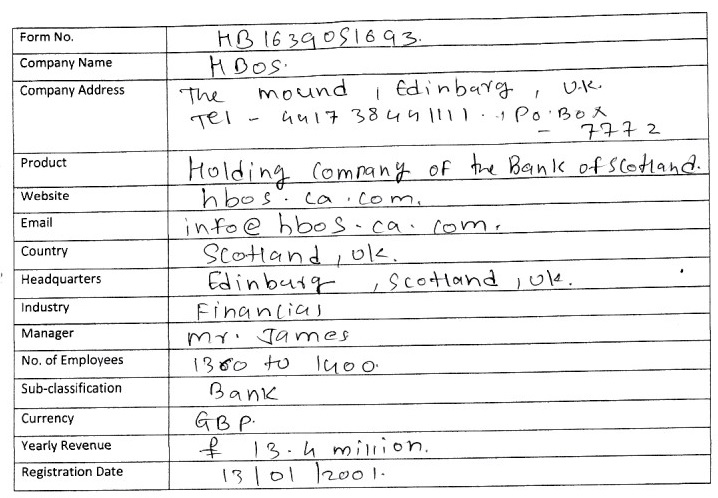 Form No. HB1639051693.
Company Name HBOS.
Company Address The mound , Edinburg , U.K.
Tel - 441738441111 . , Po. Box
- 7772
Product Holding Company of the Bank of Scotland.
Website hbos. ca .com.
Email info@hbos.ca.com.
Country Scotland, UK.
Headquarters Edinburg , Scotland, UK.
Industry Financial
Manager Mr. James
No. of Employees 1300 to 1400.
Sub-classification Bank
Currency GBP.
Yearly Revenue £ 13.4 million.
Registration Date 13/01/2001.